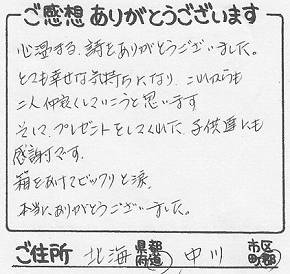 ご感想ありがとうございます
心温まる、詩をありがとうございました。
とても幸せな気持ちになり、これからも
二人仲良くしていこうと思います
そして、プレゼントをしてくれた、子供達にも
感謝です。
箱をあけてビックリと涙、
本当にありがとうございました。
ご住所 北海 都道府県 中川 市区町郡